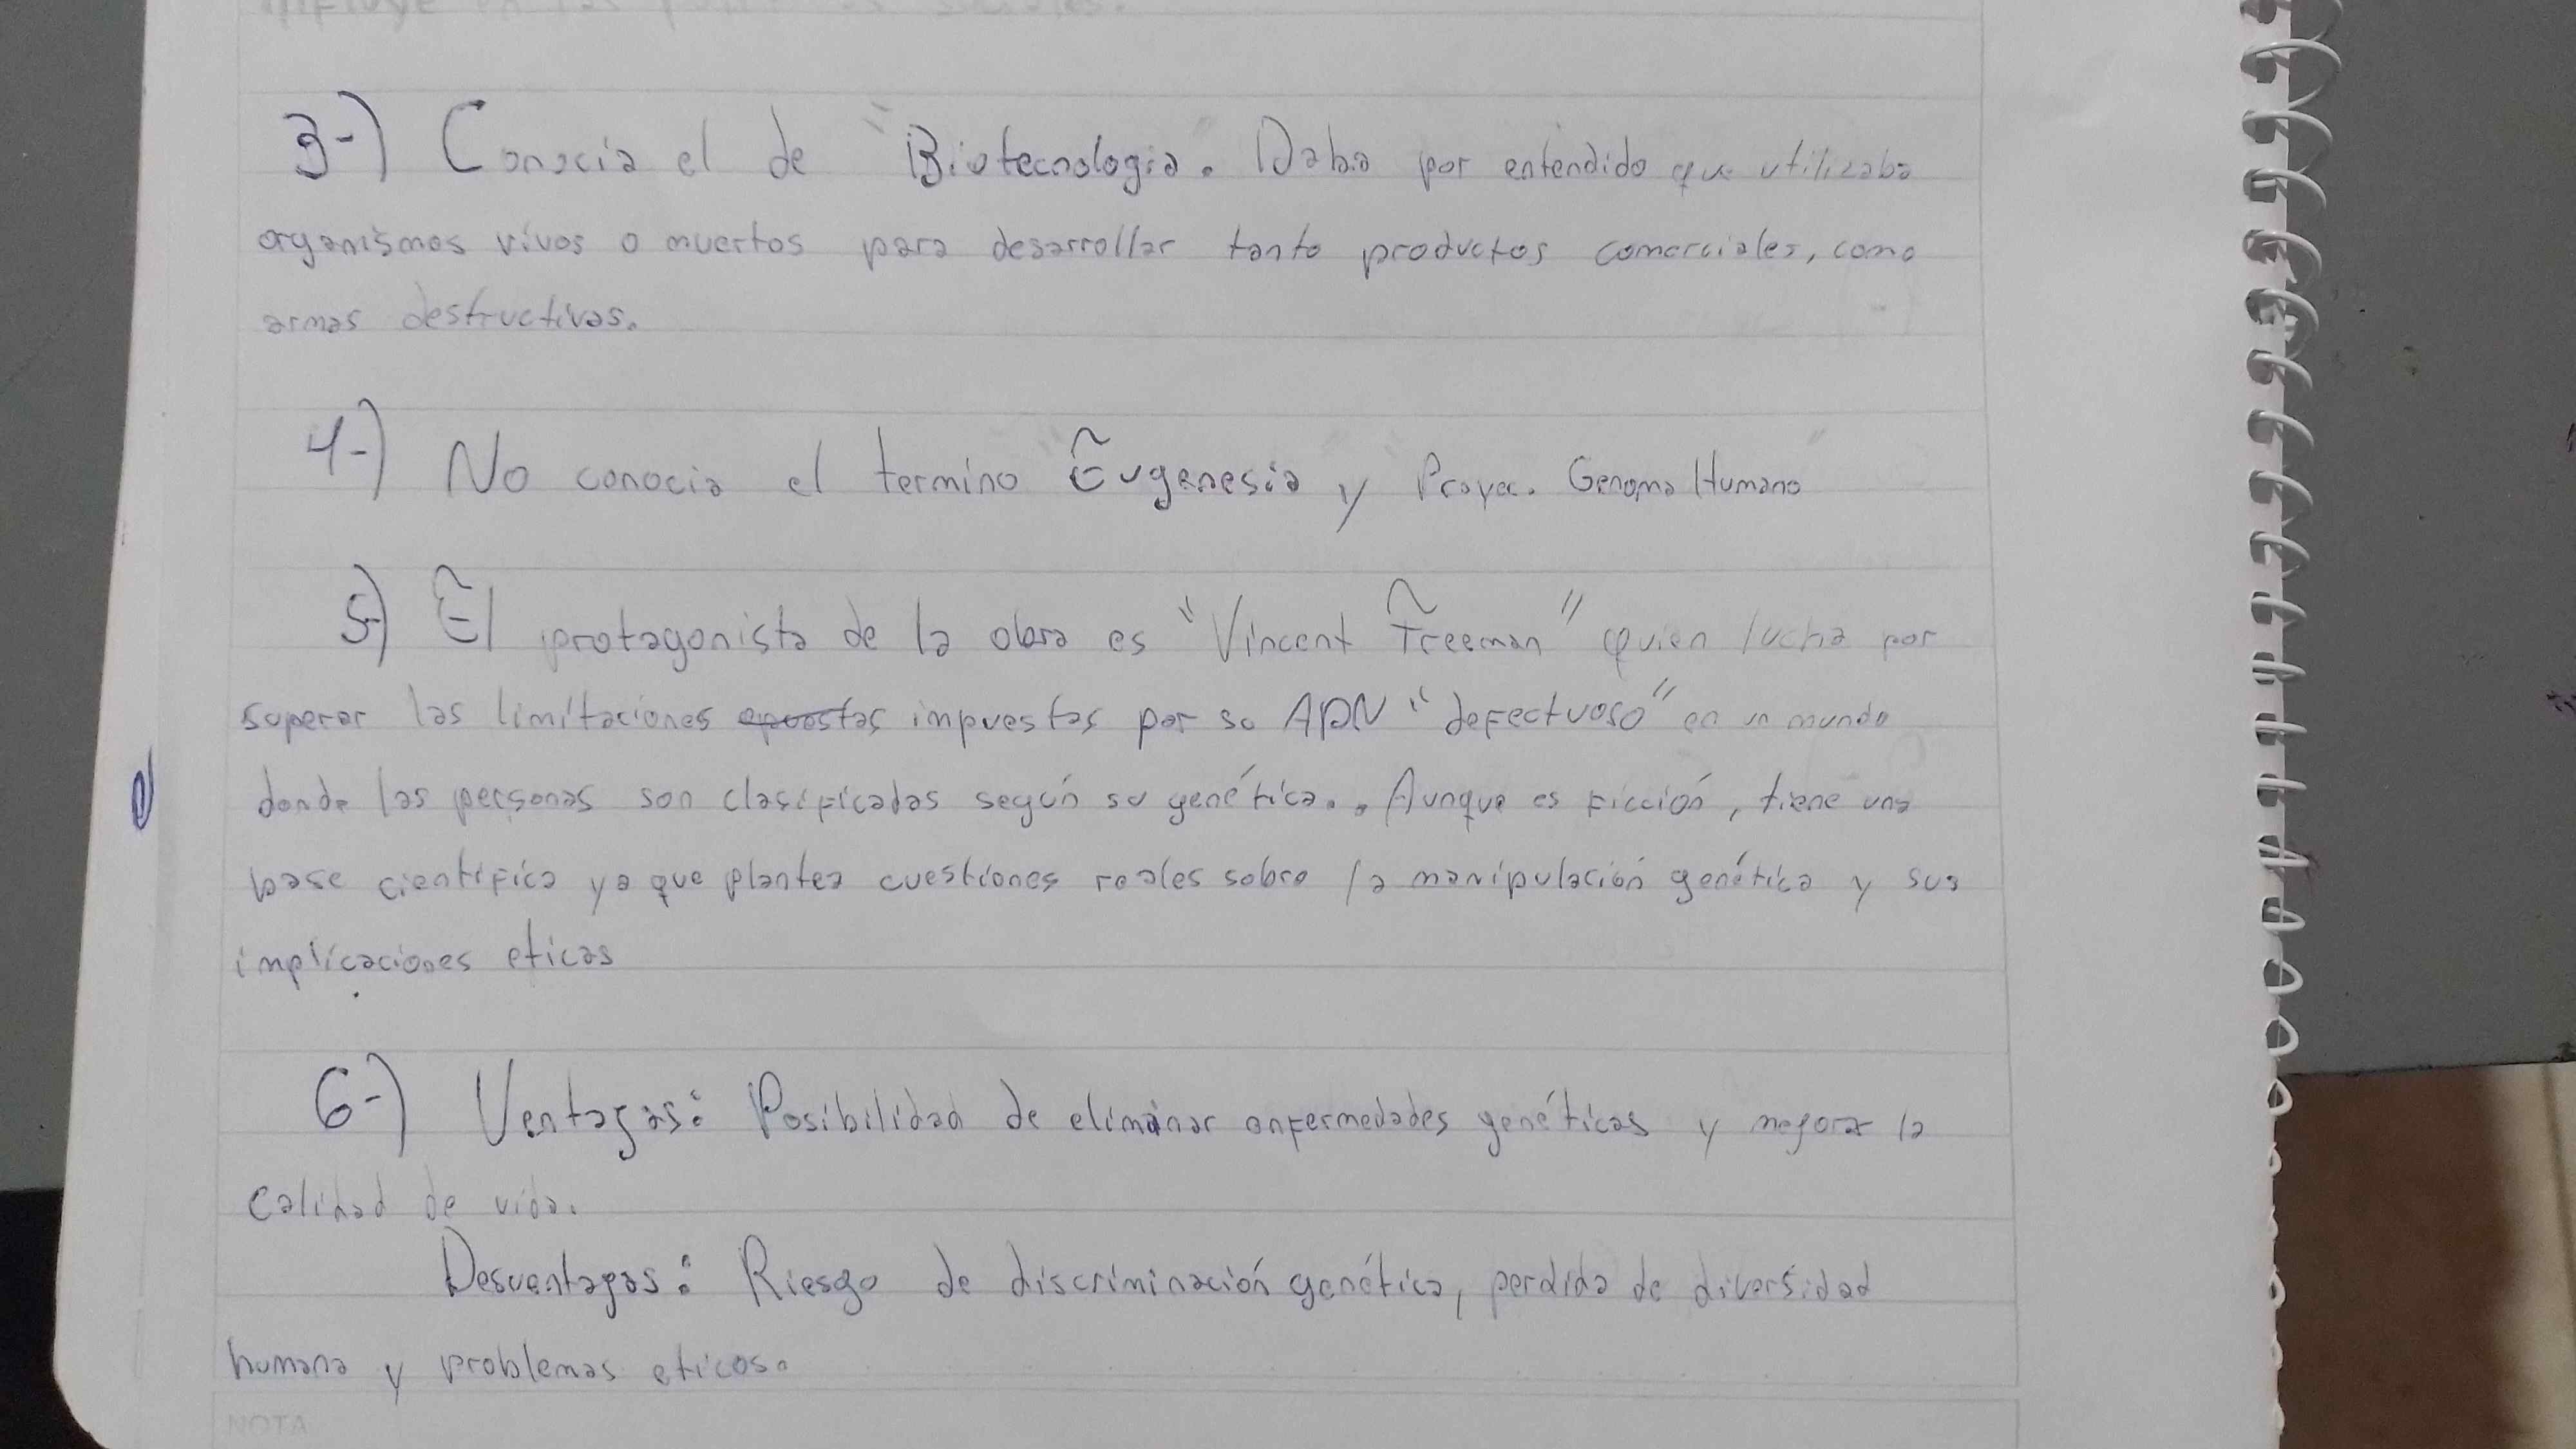 influye en las sociales.
3-) Conocia el de "Biotecnologia". Daba por entendido que utilizaba
organismos vivos o muertos para desarrollar tanto productos comerciales, como
armas destructivas.
4-) No conocia el termino "Eugenesia" y "Proyec. Genoma Humano"
5-) El protagonista de la obra es "Vincent Freeman" quien lucha por
superar las limitaciones impuestas por su ADN "defectuoso" en un mundo
donde las personas son clasificadas según su genética.. Aunque es ficción, tiene una
base cientifica ya que plantea cuestiones reales sobre la manipulación genética y sus
implicaciones eticas
6-) Ventagas: Posibilidad de eliminar enfermedades genéticas y megorar la
calidad de vida.
Desventagas: Riesgo de discriminación genética, perdida de diversidad
humana y problemas eticos.
NOTA